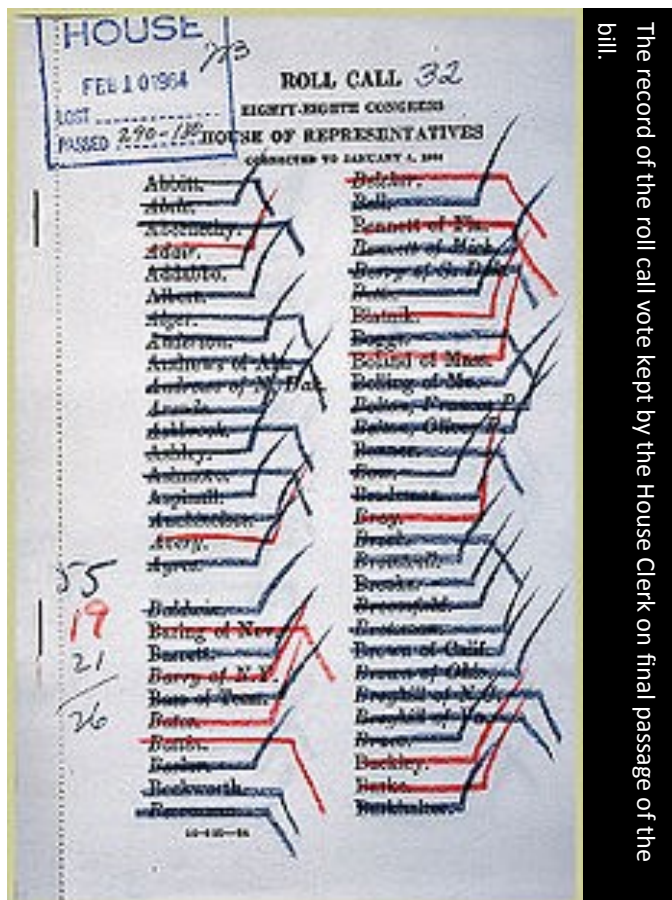 HOUSE
FEB 10 1964
LOST
PASSED 290-130
ROLL CALL 32
EIGHTY-EIGHTH CONGRESS
HOUSE OF REPRESENTATIVES
CORRECTED TO JANUARY
Abbitt.
Abele.
Abernethy.
Adair.
Addabbo.
Albert.
Alger.
Anderson.
Andrews of Ala.
Andrews of N. Dak.
Arends.
Ashbrook.
Ashley.
Ashmore.
Aspinall.
Auchincloss.
Avery.
Ayres.
Baldwin.
Baring of Nev.
Barrett.
Barry of N.Y.
Bass of Tenn.
Bates.
Battin.
Becker.
Beckworth.
Beermann.
Belcher.
Bell.
Bennett of Fla.
Bennett of Mich.
Berry of S. Dak.
Betts.
Blatnik.
Boggs.
Boland of Mass.
Bolling of Mo.
Bolton, Frances P.
Bolton, Oliver P.
Bonner.
Bow.
Brademas.
Bray.
Brock.
Bromwell.
Brooks.
Broomfield.
Brotzman.
Brown of Calif.
Brown of Ohio.
Broyhill of N.C.
Broyhill of Va.
Bruce.
Buckley.
Burke.
Burkhalter.
55
19
21
26
The record of the roll call vote kept by the House Clerk on final passage of the
bill.